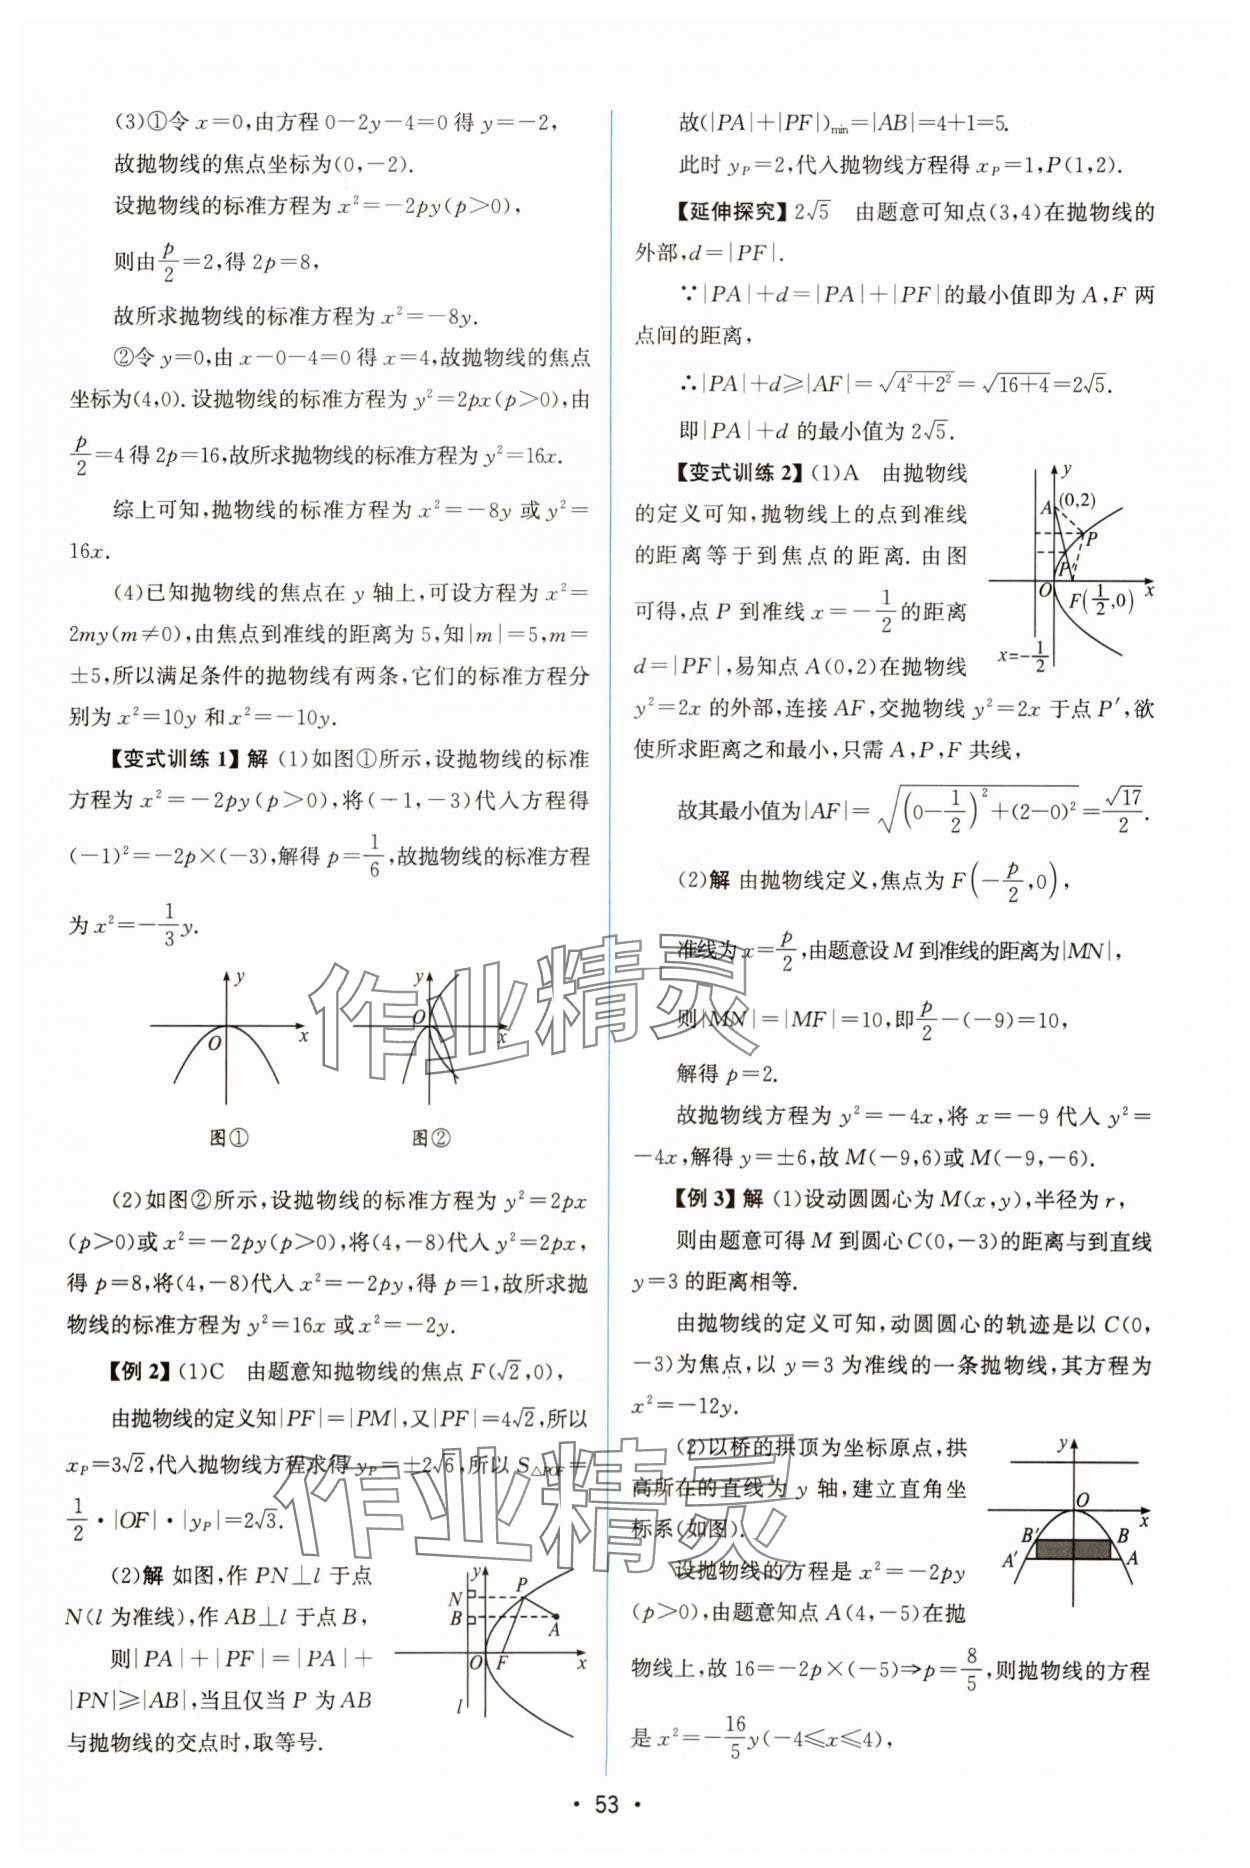 (3)①令 x=0,由方程 0-2y-4=0 得 y=-2,
故抛物线的焦点坐标为(0,-2).
设抛物线的标准方程为 x²=-2py(p>0),
则由p/2=2,得 2p=8,
故所求抛物线的标准方程为 x²=-8y.
②令 y=0,由 x-0-4=0 得 x=4,故抛物线的焦点
坐标为(4,0).设抛物线的标准方程为 y²=2px(p>0),由
p/2=4 得 2p=16,故所求抛物线的标准方程为 y²=16x.
综上可知,抛物线的标准方程为 x²=-8y 或 y²=
16x.
(4)已知抛物线的焦点在 y 轴上,可设方程为 x²=
2my(m≠0),由焦点到准线的距离为 5,知|m|=5,m=
±5,所以满足条件的抛物线有两条,它们的标准方程分
别为 x²=10y 和 x²=-10y.
【变式训练 1】解 (1)如图①所示,设抛物线的标准
方程为 x²=-2py(p>0),将(-1,-3)代入方程得
(-1)²=-2p×(-3),解得 p=1/6,故抛物线的标准方程
为 x²=-1/3y.
y
O
x
图①
y
O
x
图②
(2)如图②所示,设抛物线的标准方程为 y²=2px
(p>0)或 x²=-2py(p>0),将(4,-8)代入 y²=2px,
得 p=8,将(4,-8)代入 x²=-2py,得 p=1,故所求抛
物线的标准方程为 y²=16x 或 x²=-2y.
【例 2】(1)C 由题意知抛物线的焦点 F(√2,0),
由抛物线的定义知|PF|=|PM|,又|PF|=4√2,所以
x_P=3√2,代入抛物线方程求得 y_P=±2√6,所以 S△POF=
1/2·|OF|·|y_P|=2√3.
(2)解 如图,作 PN⊥l 于点
N(l 为准线),作 AB⊥l 于点 B,
则|PA|+|PF|=|PA|+
|PN|≥|AB|,当且仅当 P 为 AB
与抛物线的交点时,取等号.
y
N
P
B
A
O
F
x
l
故(|PA|+|PF|)min=|AB|=4+1=5.
此时 y_P=2,代入抛物线方程得 x_P=1,P(1,2).
【延伸探究】2√5 由题意可知点(3,4)在抛物线的
外部,d=|PF|.
∵|PA|+d=|PA|+|PF|的最小值即为 A,F 两
点间的距离,
∴|PA|+d≥|AF|=√(4²+2²)=√(16+4)=2√5.
即|PA|+d 的最小值为 2√5.
【变式训练 2】(1)A 由抛物线
的定义可知,抛物线上的点到准线
的距离等于到焦点的距离.由图
可得,点 P 到准线 x=-1/2的距离
d=|PF|,易知点 A(0,2)在抛物线
y²=2x 的外部,连接 AF,交抛物线 y²=2x 于点 P′,欲
使所求距离之和最小,只需 A,P,F 共线,
y
A (0,2)
P
P′
O
F(1/2,0)
x
x=-1/2
故其最小值为|AF|=√((0-1/2)²+(2-0)²)=√17/2.
(2)解 由抛物线定义,焦点为 F(-p/2,0),
准线为 x=p/2,由题意设 M 到准线的距离为|MN|,
则|MN|=|MF|=10,即p/2-(-9)=10,
解得 p=2.
故抛物线方程为 y²=-4x,将 x=-9 代入 y²=
-4x,解得 y=±6,故 M(-9,6)或 M(-9,-6).
【例 3】解 (1)设动圆圆心为 M(x,y),半径为 r,
则由题意可得 M 到圆心 C(0,-3)的距离与到直线
y=3 的距离相等.
由抛物线的定义可知,动圆圆心的轨迹是以 C(0,
-3)为焦点,以 y=3 为准线的一条抛物线,其方程为
x²=-12y.
(2)以桥的拱顶为坐标原点,拱
高所在的直线为 y 轴,建立直角坐
标系(如图).
设抛物线的方程是 x²=-2py
(p>0),由题意知点 A(4,-5)在抛
物线上,故 16=-2p×(-5)⇒p=8/5,则抛物线的方程
是 x²=-16/5y(-4≤x≤4),
y
O
x
B′
B
A′
A
作业精灵
作业精灵
· 53 ·